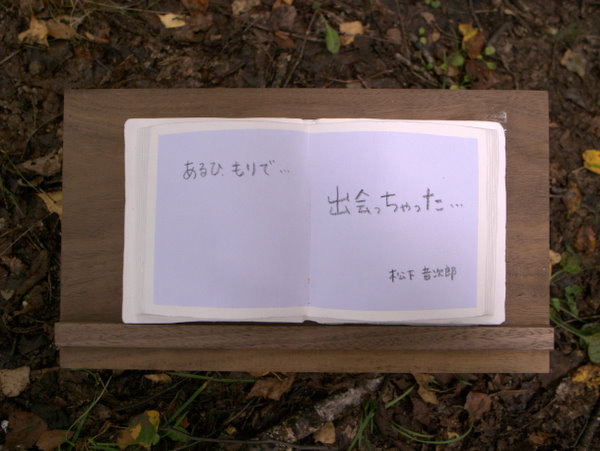 あるひ、もりで...
出会っちゃった...
松下 音次郎